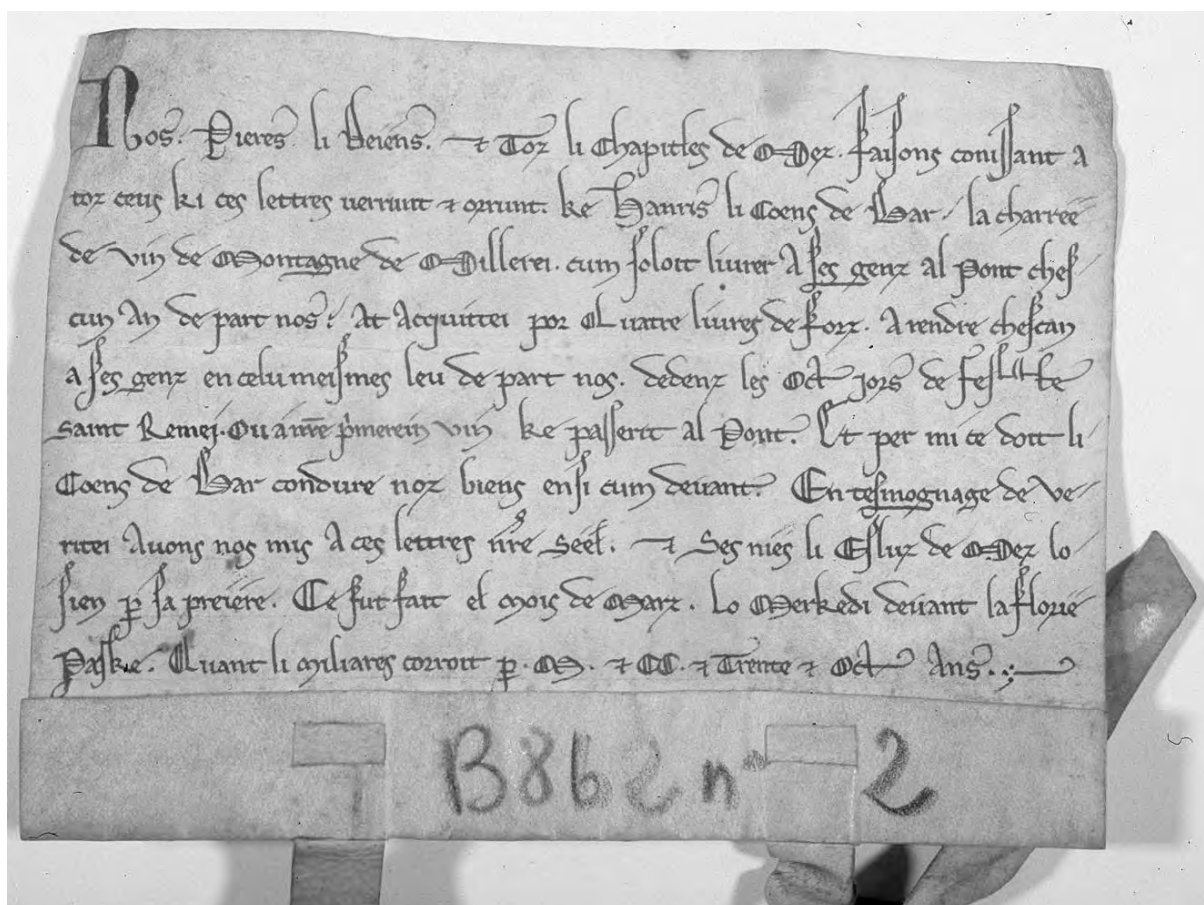 Nos. Pieres li Deiens. ⁊ Toz li Chapitles de Mez. Faisons conissant a
toz ceus ki ces lettres verrunt ⁊ orrunt. ke Hanris li Coens de Bar / la charrée
de vin de Montagne de Millerei. cum soloit livrer A ses genz al Pont ches/
cun An de part nos. At Acquittei por Quatre livres de forz. A rendre chescan
a ses genz en celu meismes leu de part nos. dedenz les Oct jors de feste
saint Remei. Ou a nr̄e p̄merein vin ke passerit al Pont. Et per mi ce doit li
Coens de Bar condure noz biens ensi cum devant. En tesmognage de ve/
ritei Avons nos mis A ces lettres nr̄e Seel. ⁊ Ses niés li Esluz de Mez lo
sien ꝑ sa preiere. Ce fut fait el mois de Marz. Lo Merkedi devant la florie
Paske. Quant li miliares corroit ꝑ. M. ⁊ CC. ⁊ Trente ⁊ Oct Ans.
B862 n° 2